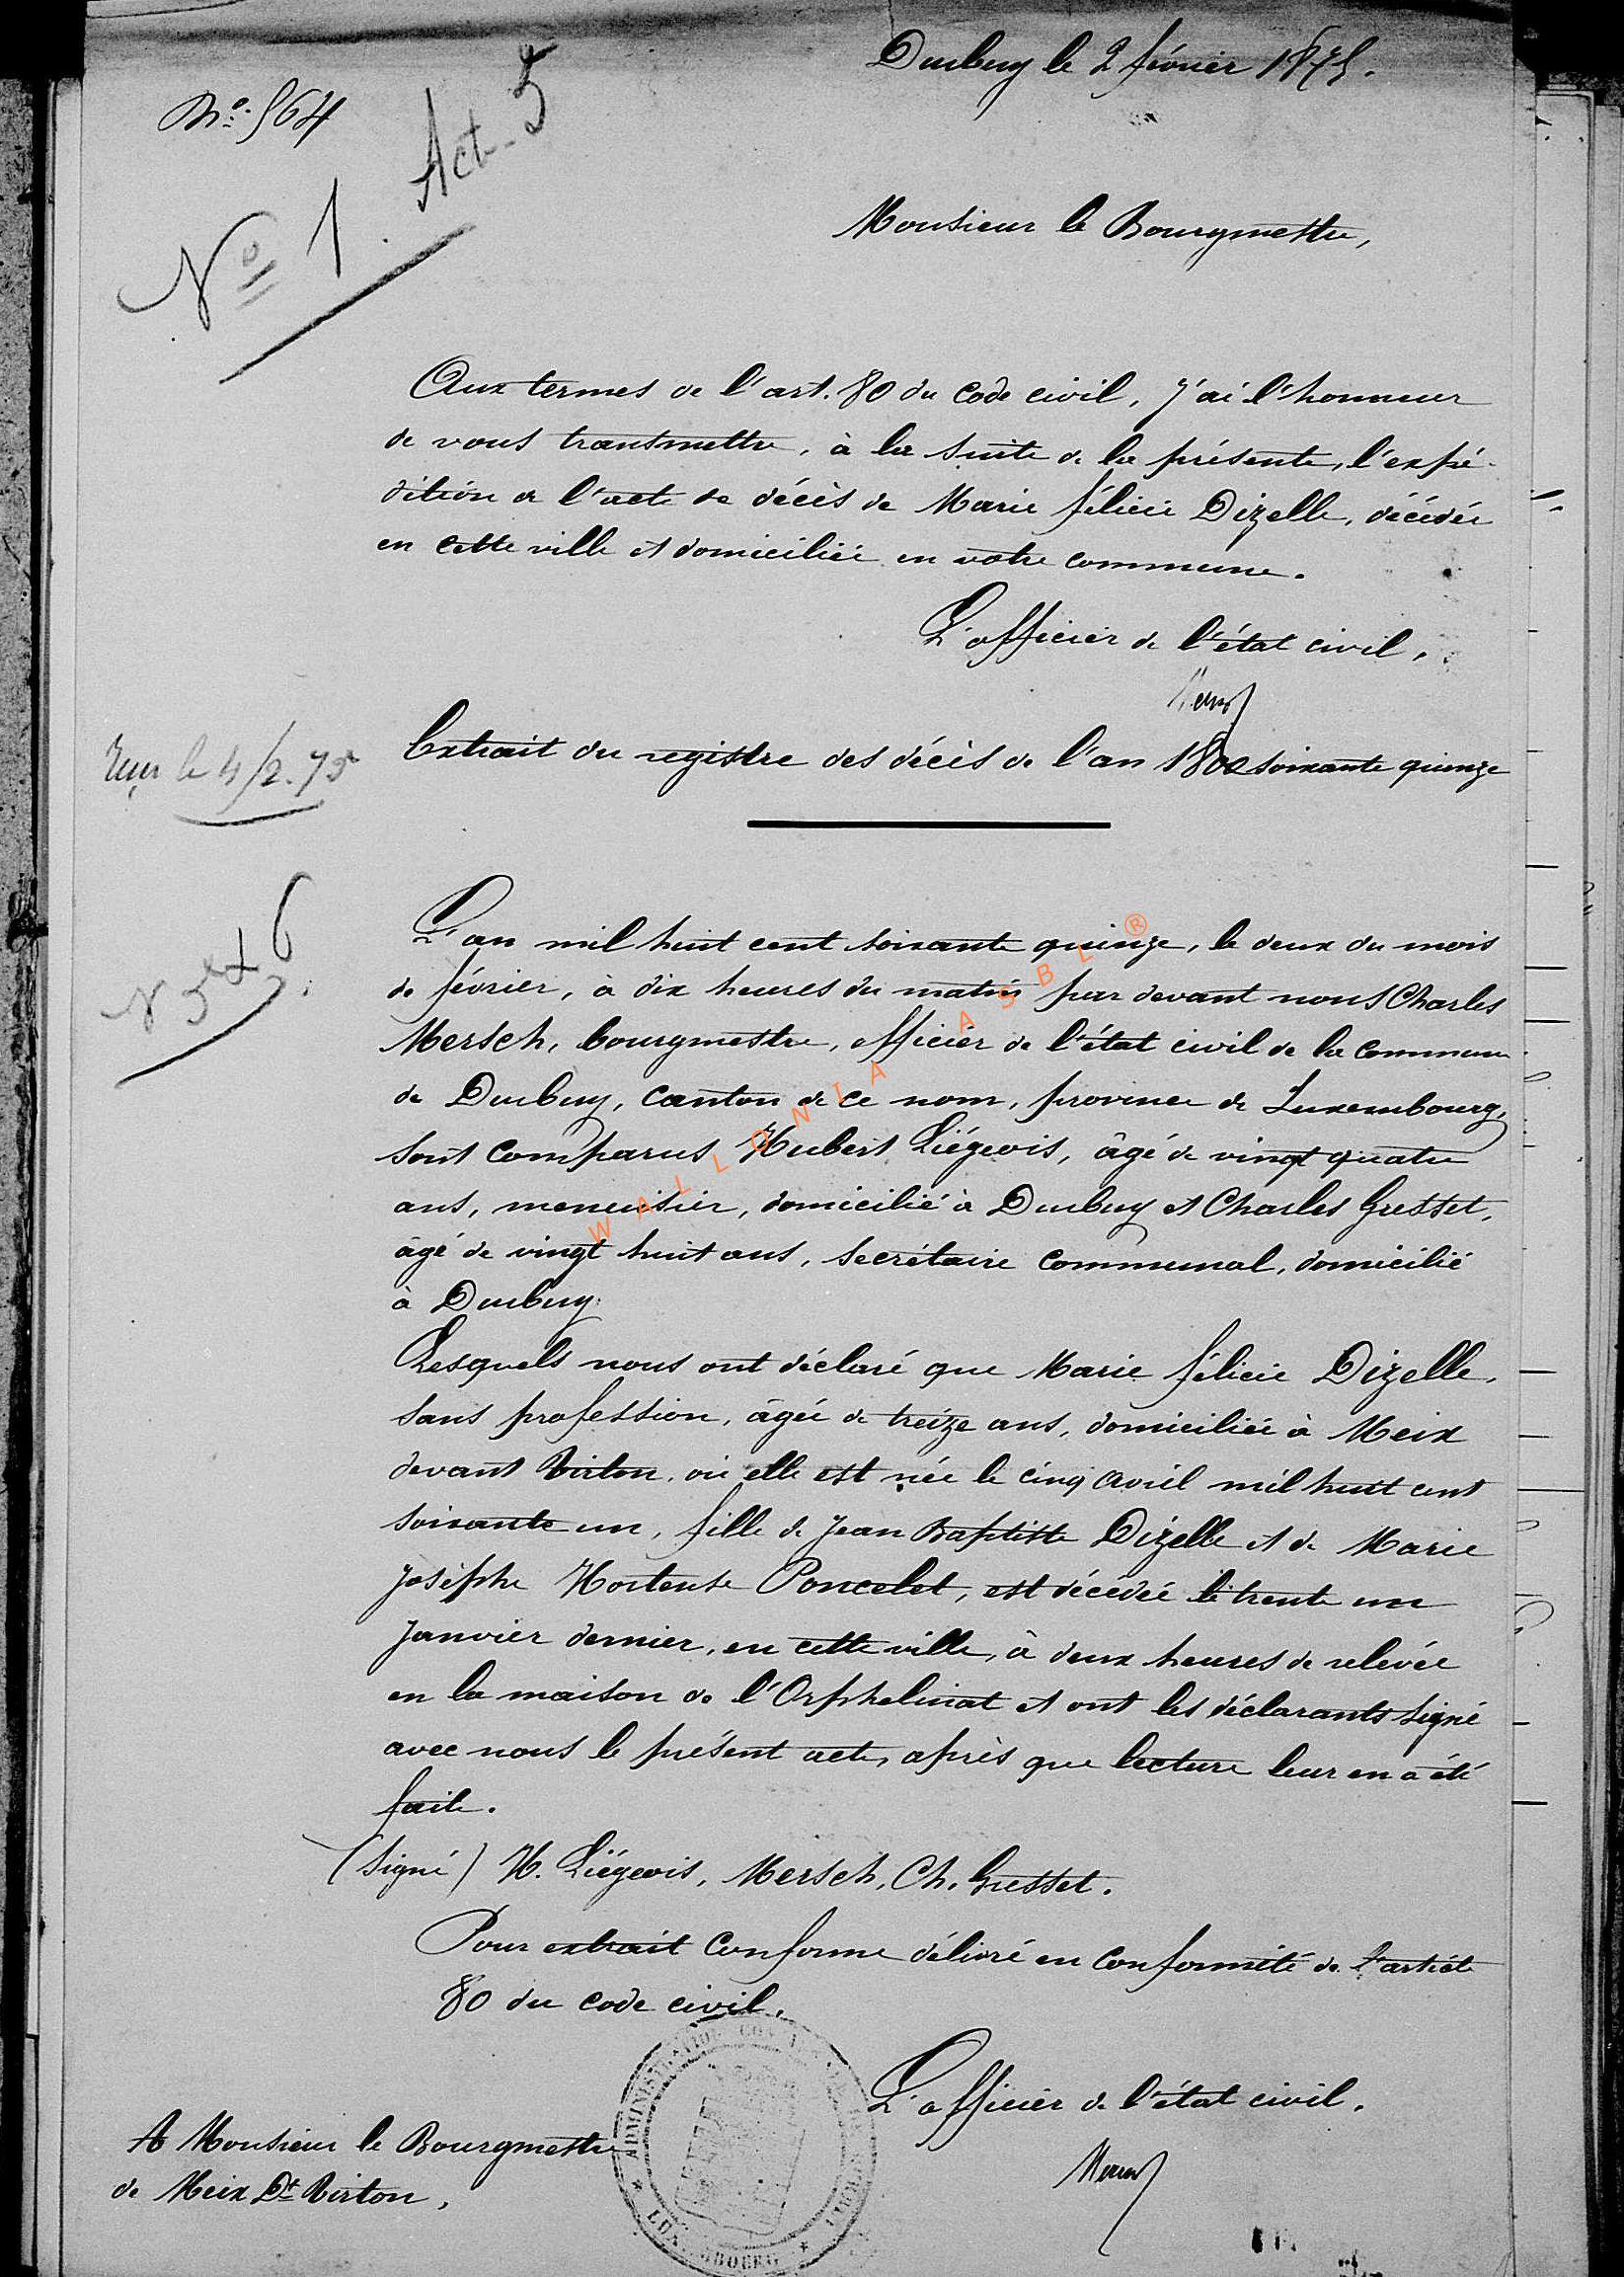 Durbuy le 2 février 1875.
No. 564
Act. 5
No 1.
Monsieur le Bourgmestre,
Aux termes de l'art. 80 du code civil, j'ai l'honneur
de vous transmettre, à la suite de la présente, l'expé-
dition de l'acte de décès de Marie félicie Dizelle, décédée
en cette ville et domiciliée en votre commune.
L'officier de l'état civil,
Extrait du registre des décès de l'an 1800 soixante quinze
Reçu le 4/2.75
L'an mil huit cent soixante quinze, le deux du mois
de février, à dix heures du matin par devant nous Charles
N 5 et 6
Mersch, bourgmestre, officier de l'état civil de la commune
de Durbuy, canton de ce nom, province de Luxembourg,
sont comparus Hubert Liégeois, âgé de vingt quatre
ans, menuisier, domicilié à Durbuy et Charles Gresset,
âgé de vingt huit ans, secrétaire communal, domicilié
à Durbuy.
Lesquels nous ont déclaré que Marie félicie Dizelle,
sans profession, âgée de treize ans, domiciliée à Meix
devant Virton, où elle est née le cinq avril mil huit cent
soixante un, fille de Jean Baptiste Dizelle et de Marie
Josèphe Hortense Poncelet, est décédée le trente un
Janvier dernier, en cette ville, à deux heures de relévée
en la maison de l'Orphelinat et ont les déclarants signé
avec nous le présent acte, après que lecture leur en a été
faite.
(signé) H. Liégeois, Mersch, Ch. Gresset.
Pour extrait conforme délivré en conformité de l'article
80 du code civil.
L'officier de l'état civil.
A Monsieur le Bourgmestre
de Meix Dt Virton,
ADMINISTRATION
LUXEMBOURG
WALLONIA ASBL ®